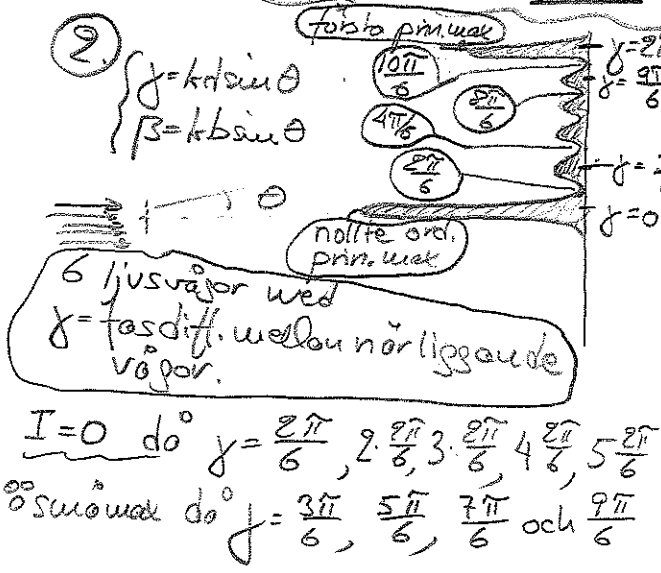 2.
γ = kd sin θ
β = kb sin θ
första prin.max
10π/6
8π/6
4π/6
2π/6
γ = 2π
γ = 9π/6
γ =
γ = 0
θ
nollte ord. prin. max
6 ljusvågor med
γ = fasdiff. mellan närliggande
vågor.
I=0 då γ = 2π/6, 2·2π/6, 3·2π/6, 4 2π/6, 5 2π/6
småmax då γ = 3π/6, 5π/6, 7π/6 och 9π/6